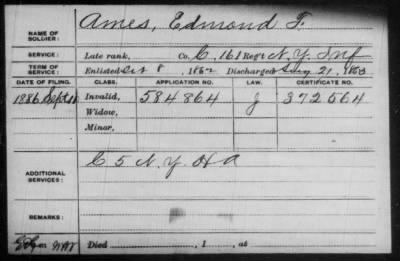 NAME OF SOLDIER: Ames, Edmond F.
SERVICE: Late rank, Co. C, 161 Reg't N.Y. Inf
TERM OF SERVICE: Enlisted Oct 8, 1862 Discharged Aug 21, 1863
DATE OF FILING. CLASS. APPLICATION NO. LAW. CERTIFICATE NO.
1886 Sept 10 Invalid, 584864 J 372564
Widow,
Minor,
ADDITIONAL SERVICES: C 5 N.Y. HA
REMARKS:
Died , 1 , at